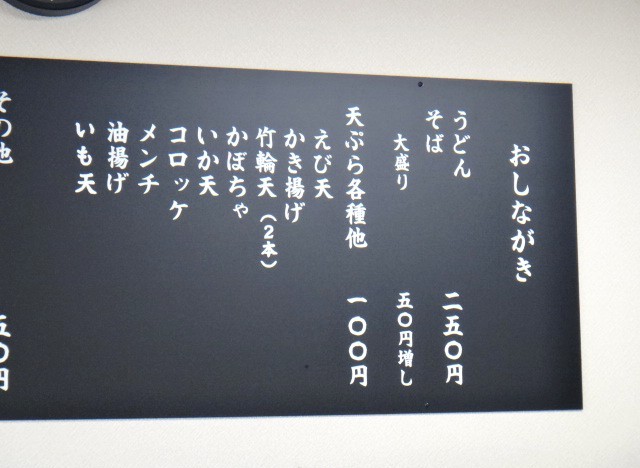 おしながき
うどん
そば 二五〇円
大盛り 五〇円増し
天ぷら各種他 一〇〇円
えび天
かき揚げ
竹輪天（2本）
かぼちゃ
いか天
コロッケ
メンチ
油揚げ
いも天
その他 五〇円